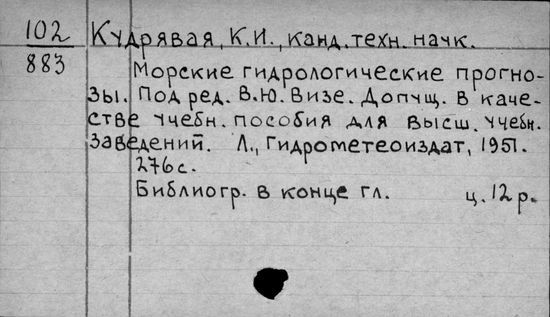 102 Кудрявая, К.И., канд. техн. наук.
883
Морские гидрологические прогно-
зы. Под ред. В.Ю. Визе. Допущ. в каче-
стве учебн. пособия для высш. учебн.
заведений. Л., Гидрометеоиздат, 1951.
276 с.
Библиогр. в конце гл. ц. 12 р.